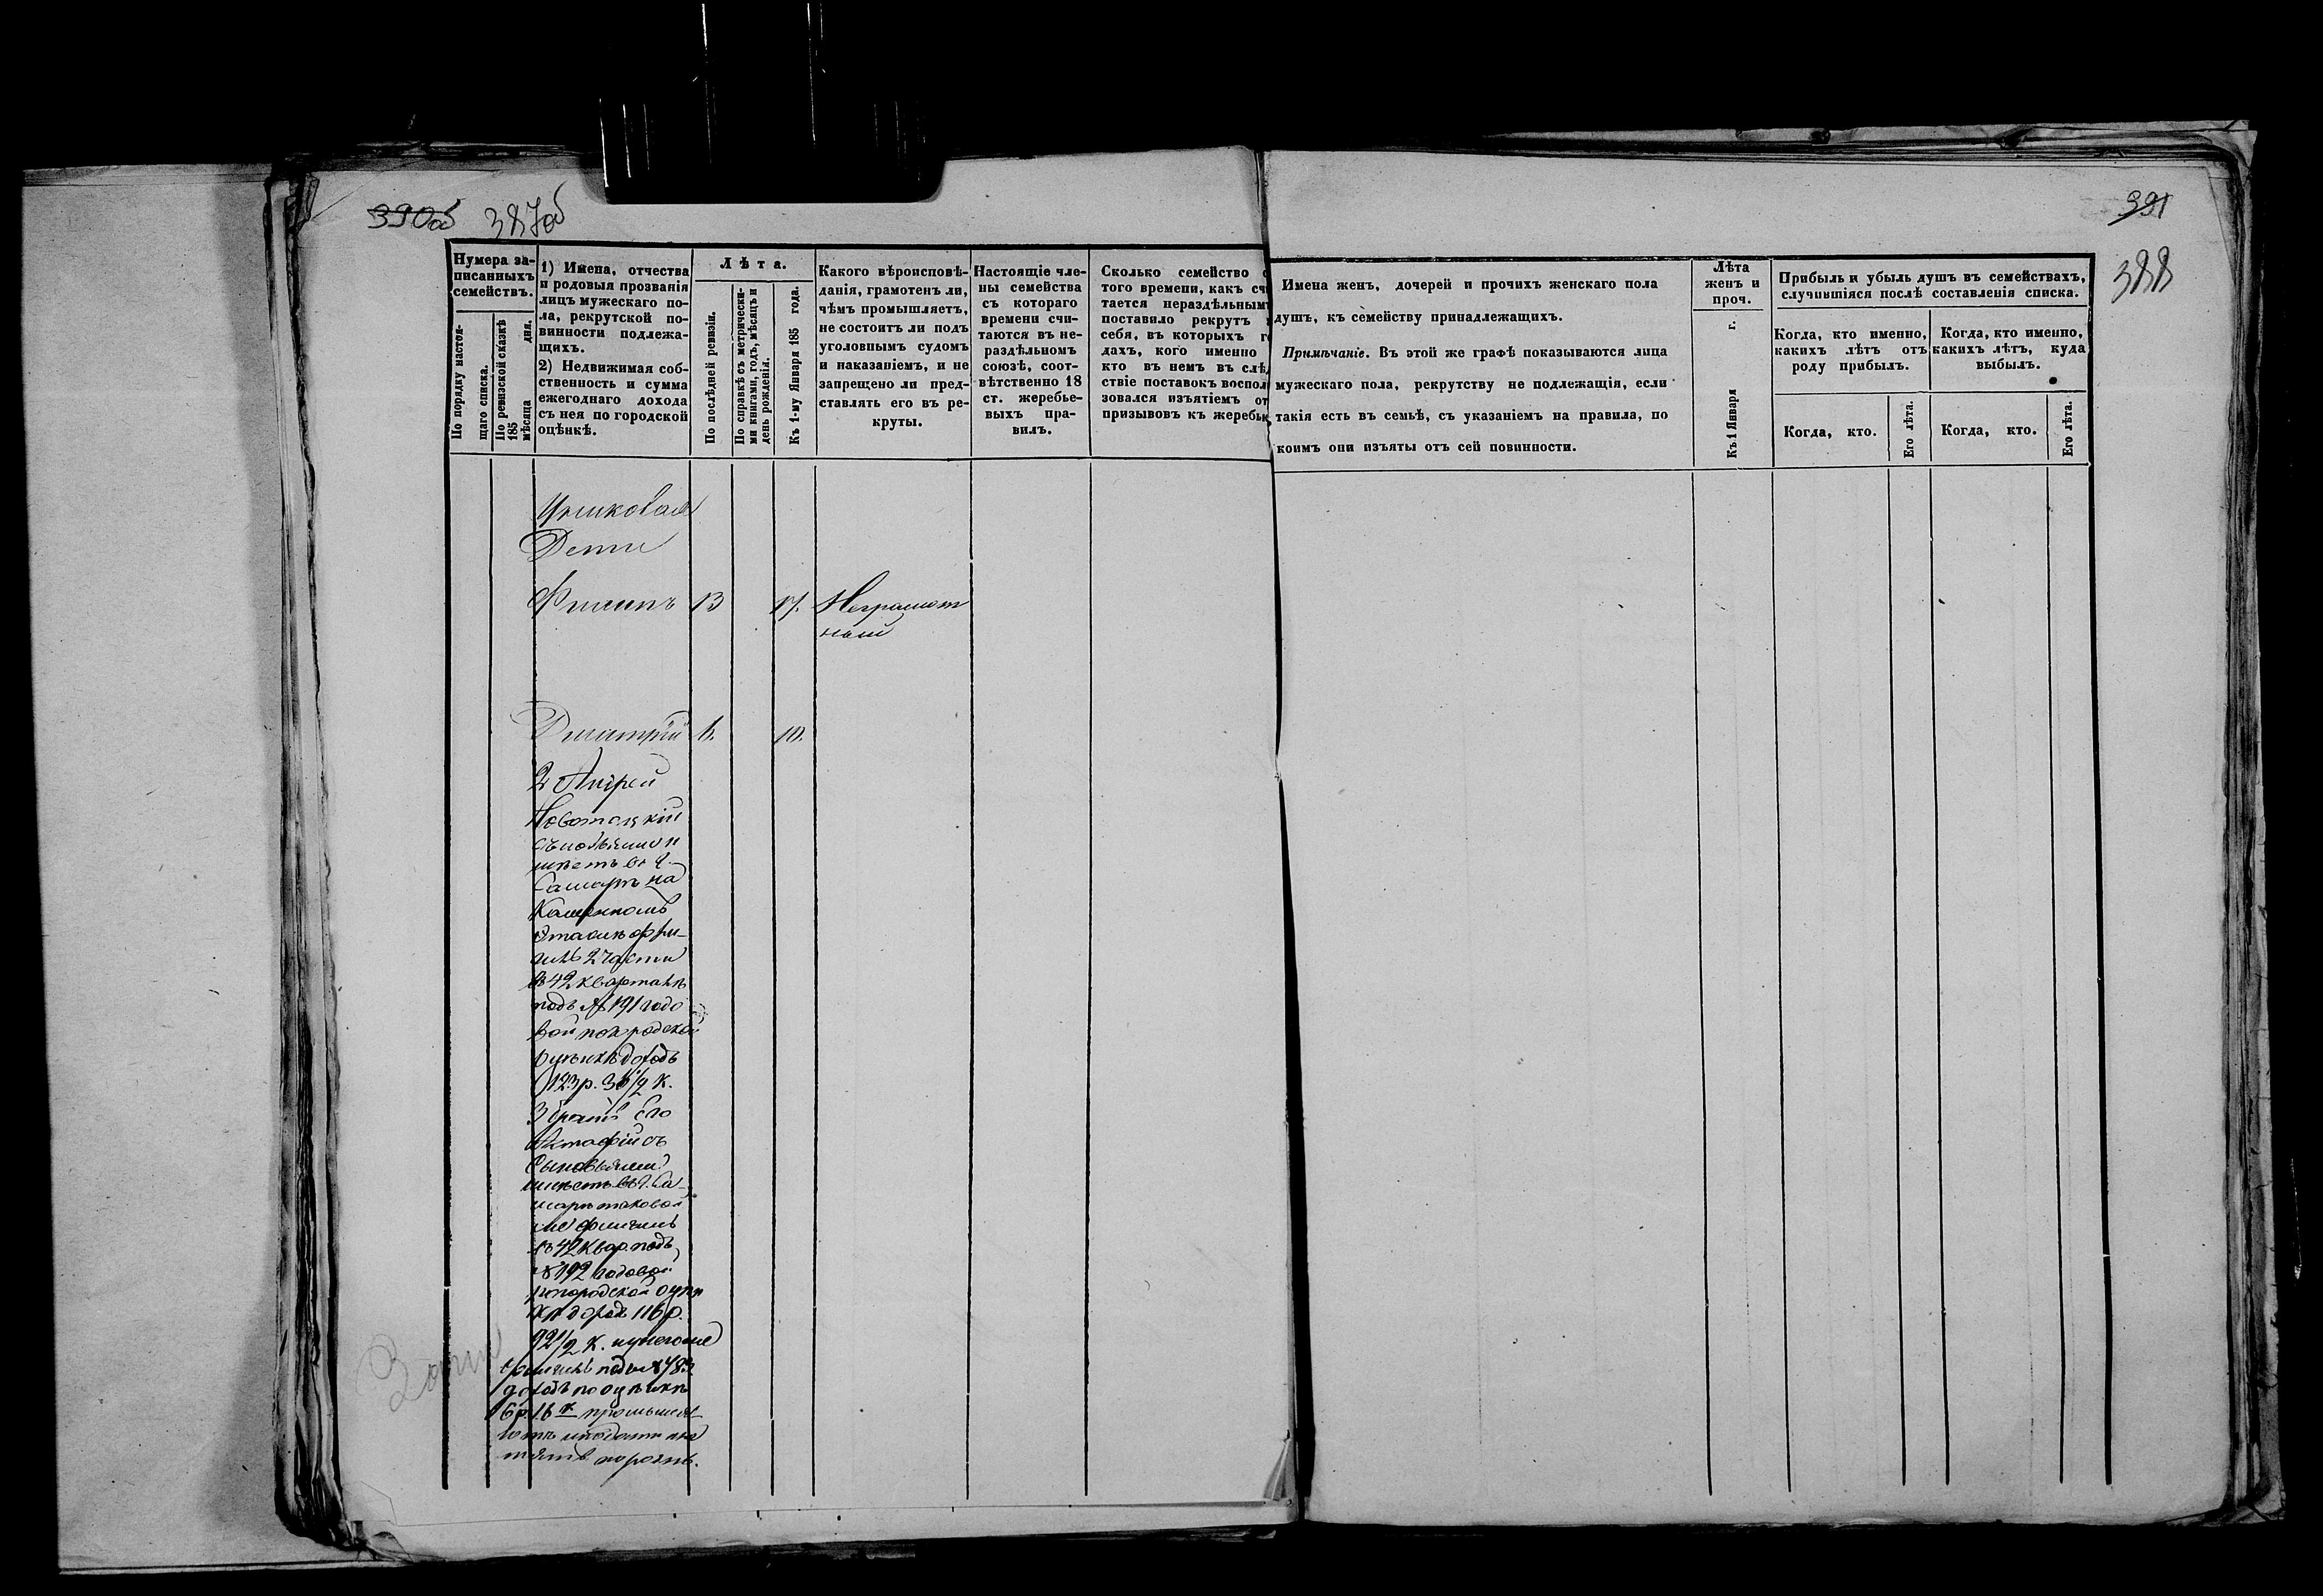 390об 387об
391
388
Нумера за-
писанныхъ
семействъ.
По порядку настоя-
щаго списка.
По ревизской сказкѣ
185
мѣсяца дня.
1) Имена, отчества
и родовыя прозванія
лицъ мужескаго по-
ла, рекрутской по-
винности подлежа-
щихъ.
2) Недвижимая соб-
ственность и сумма
ежегоднаго дохода
съ нея по городской
оцѣнкѣ.
Лѣта.
По послѣдней ревизіи.
По справкѣ съ метрически-
ми книгами, годъ, мѣсяцъ и
день рожденія.
Къ 1-му Января 185 года.
Какого вѣроисповѣ-
данія, грамотенъ ли,
чѣмъ промышляетъ,
не состоитъ ли подъ
уголовнымъ судомъ
и наказаніемъ, и не
запрещено ли пред-
ставлять его въ ре-
круты.
Настоящіе чле-
ны семейства
съ котораго
времени счи-
таются въ не-
раздѣльномъ
союзѣ, соот-
вѣтственно 18
ст. жеребье-
выхъ пра-
вилъ.
Сколько семейство с
того времени, какъ сч
тается нераздѣльным
поставило рекрутъ
себя, въ которыхъ г
дахъ, кого именно
кто въ немъ въ слѣ
ствіе поставокъ воспол
зовался изъятіемъ от
призывовъ къ жеребьк
Имена женъ, дочерей и прочихъ женскаго пола
душъ, къ семейству принадлежащихъ.
Примѣчаніе. Въ этой же графѣ показываются лица
мужескаго пола, рекрутству не подлежащія, если
такія есть въ семьѣ, съ указаніемъ на правила, по
коимъ они изъяты отъ сей повинности.
Лѣта
женъ и
проч.
Къ 1 Января г.
Прибыль и убыль душъ въ семействахъ,
случившіяся послѣ составленія списка.
Когда, кто именно,
какихъ лѣтъ отъ
роду прибылъ.
Когда, кто именно,
какихъ лѣтъ, куда
выбылъ.
Когда, кто.
Его лѣта.
Когда, кто.
Его лѣта.
Дети
Филипъ 13 17. Неграмот
ный
Дмитрій 6. 10.
2 Андрей
Новотоцкій
съ сыновьями и
имѣетъ въ г.
Самарѣ на
Каменномъ
2 части
въ 42 кварталѣ
подъ № 191 годо
вой по городской
оцѣнкѣ доходъ
123 р. 36 1/2 к.
3 братъ Его
съ
Сыновьями
имѣетъ въ г. Са-
марѣ таковой
же
въ 42 квар. подъ
№ 192 годовой
по городской оцѣн
кѣ доходъ 116 р.
92 1/2 к.
подъ № 483
доходъ по оцѣнкѣ
6 р. 16 к промышля-
ютъ и подати пла
тятъ порознь.